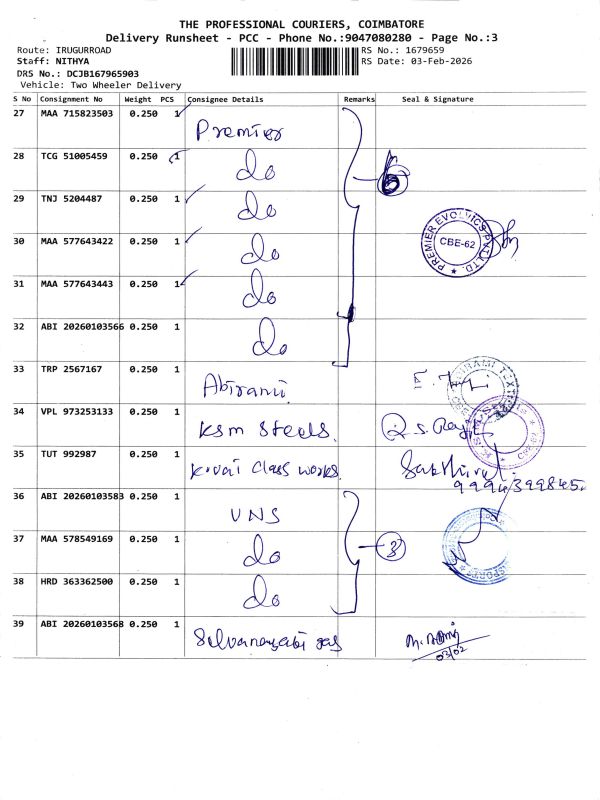 THE PROFESSIONAL COURIERS, COIMBATORE
Delivery Runsheet - PCC - Phone No.:9047080280 - Page No.:3
Route: IRUGURROAD RS No.: 1679659
Staff: NITHYA RS Date: 03-Feb-2026
DRS No.: DCJB167965903
Vehicle: Two Wheeler Delivery
S No Consignment No Weight PCS Consignee Details Remarks Seal & Signature
27 MAA 715823503 0.250 1 Premier
28 TCG 51005459 0.250 1 do 6
29 TNJ 5204487 0.250 1 do
30 MAA 577643422 0.250 1 do PREMIER EVOLVICS PVT LTD. CBE-62
31 MAA 577643443 0.250 1 do
32 ABI 20260103566 0.250 1 do
33 TRP 2567167 0.250 1 Abirami
34 VPL 973253133 0.250 1 KSM Steels.
35 TUT 992987 0.250 1 Kovai Class works.
9994399845.
36 ABI 20260103583 0.250 1 VNS
37 MAA 578549169 0.250 1 do 3
38 HRD 363362500 0.250 1 do
39 ABI 20260103568 0.250 1
03/02